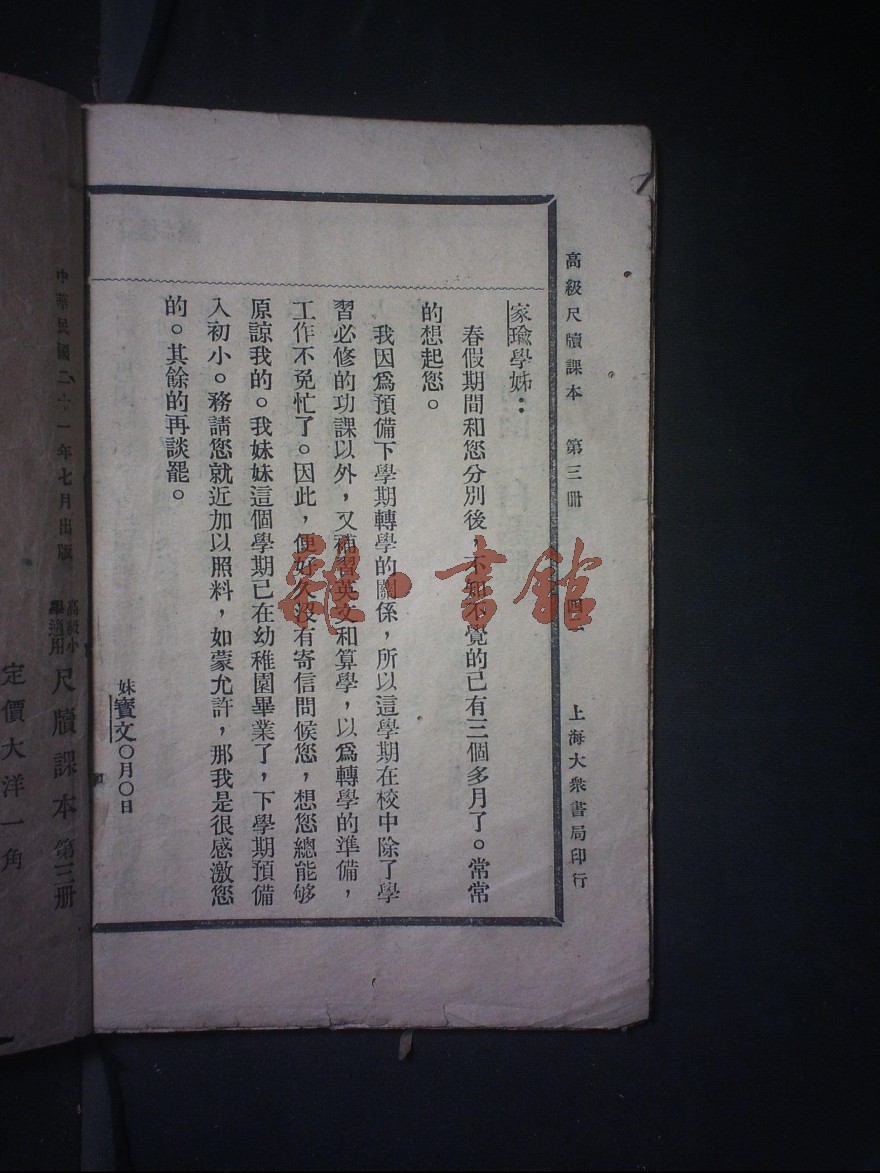 高級尺牘課本　第三冊
上海大衆書局印行
家瑜學姊：
春假期間和您分別後，不知不覺的已有三個多月了。常常
的想起您。
我因爲預備下學期轉學的關係，所以這學期在校中除了學
習必修的功課以外，又補習英文和算學，以爲轉學的準備，
工作不免忙了。因此，便好久沒有寄信問候您，想您總能够
原諒我的。我妹妹這個學期已在幼稚園畢業了，下學期預備
入初小。務請您就近加以照料，如蒙允許，那我是很感激您
的。其餘的再談罷。
妹寶文〇月〇日
雜·書館
中華民國二十一年七月出版
高級小
學適用
尺牘課本第三册
定價大洋一角